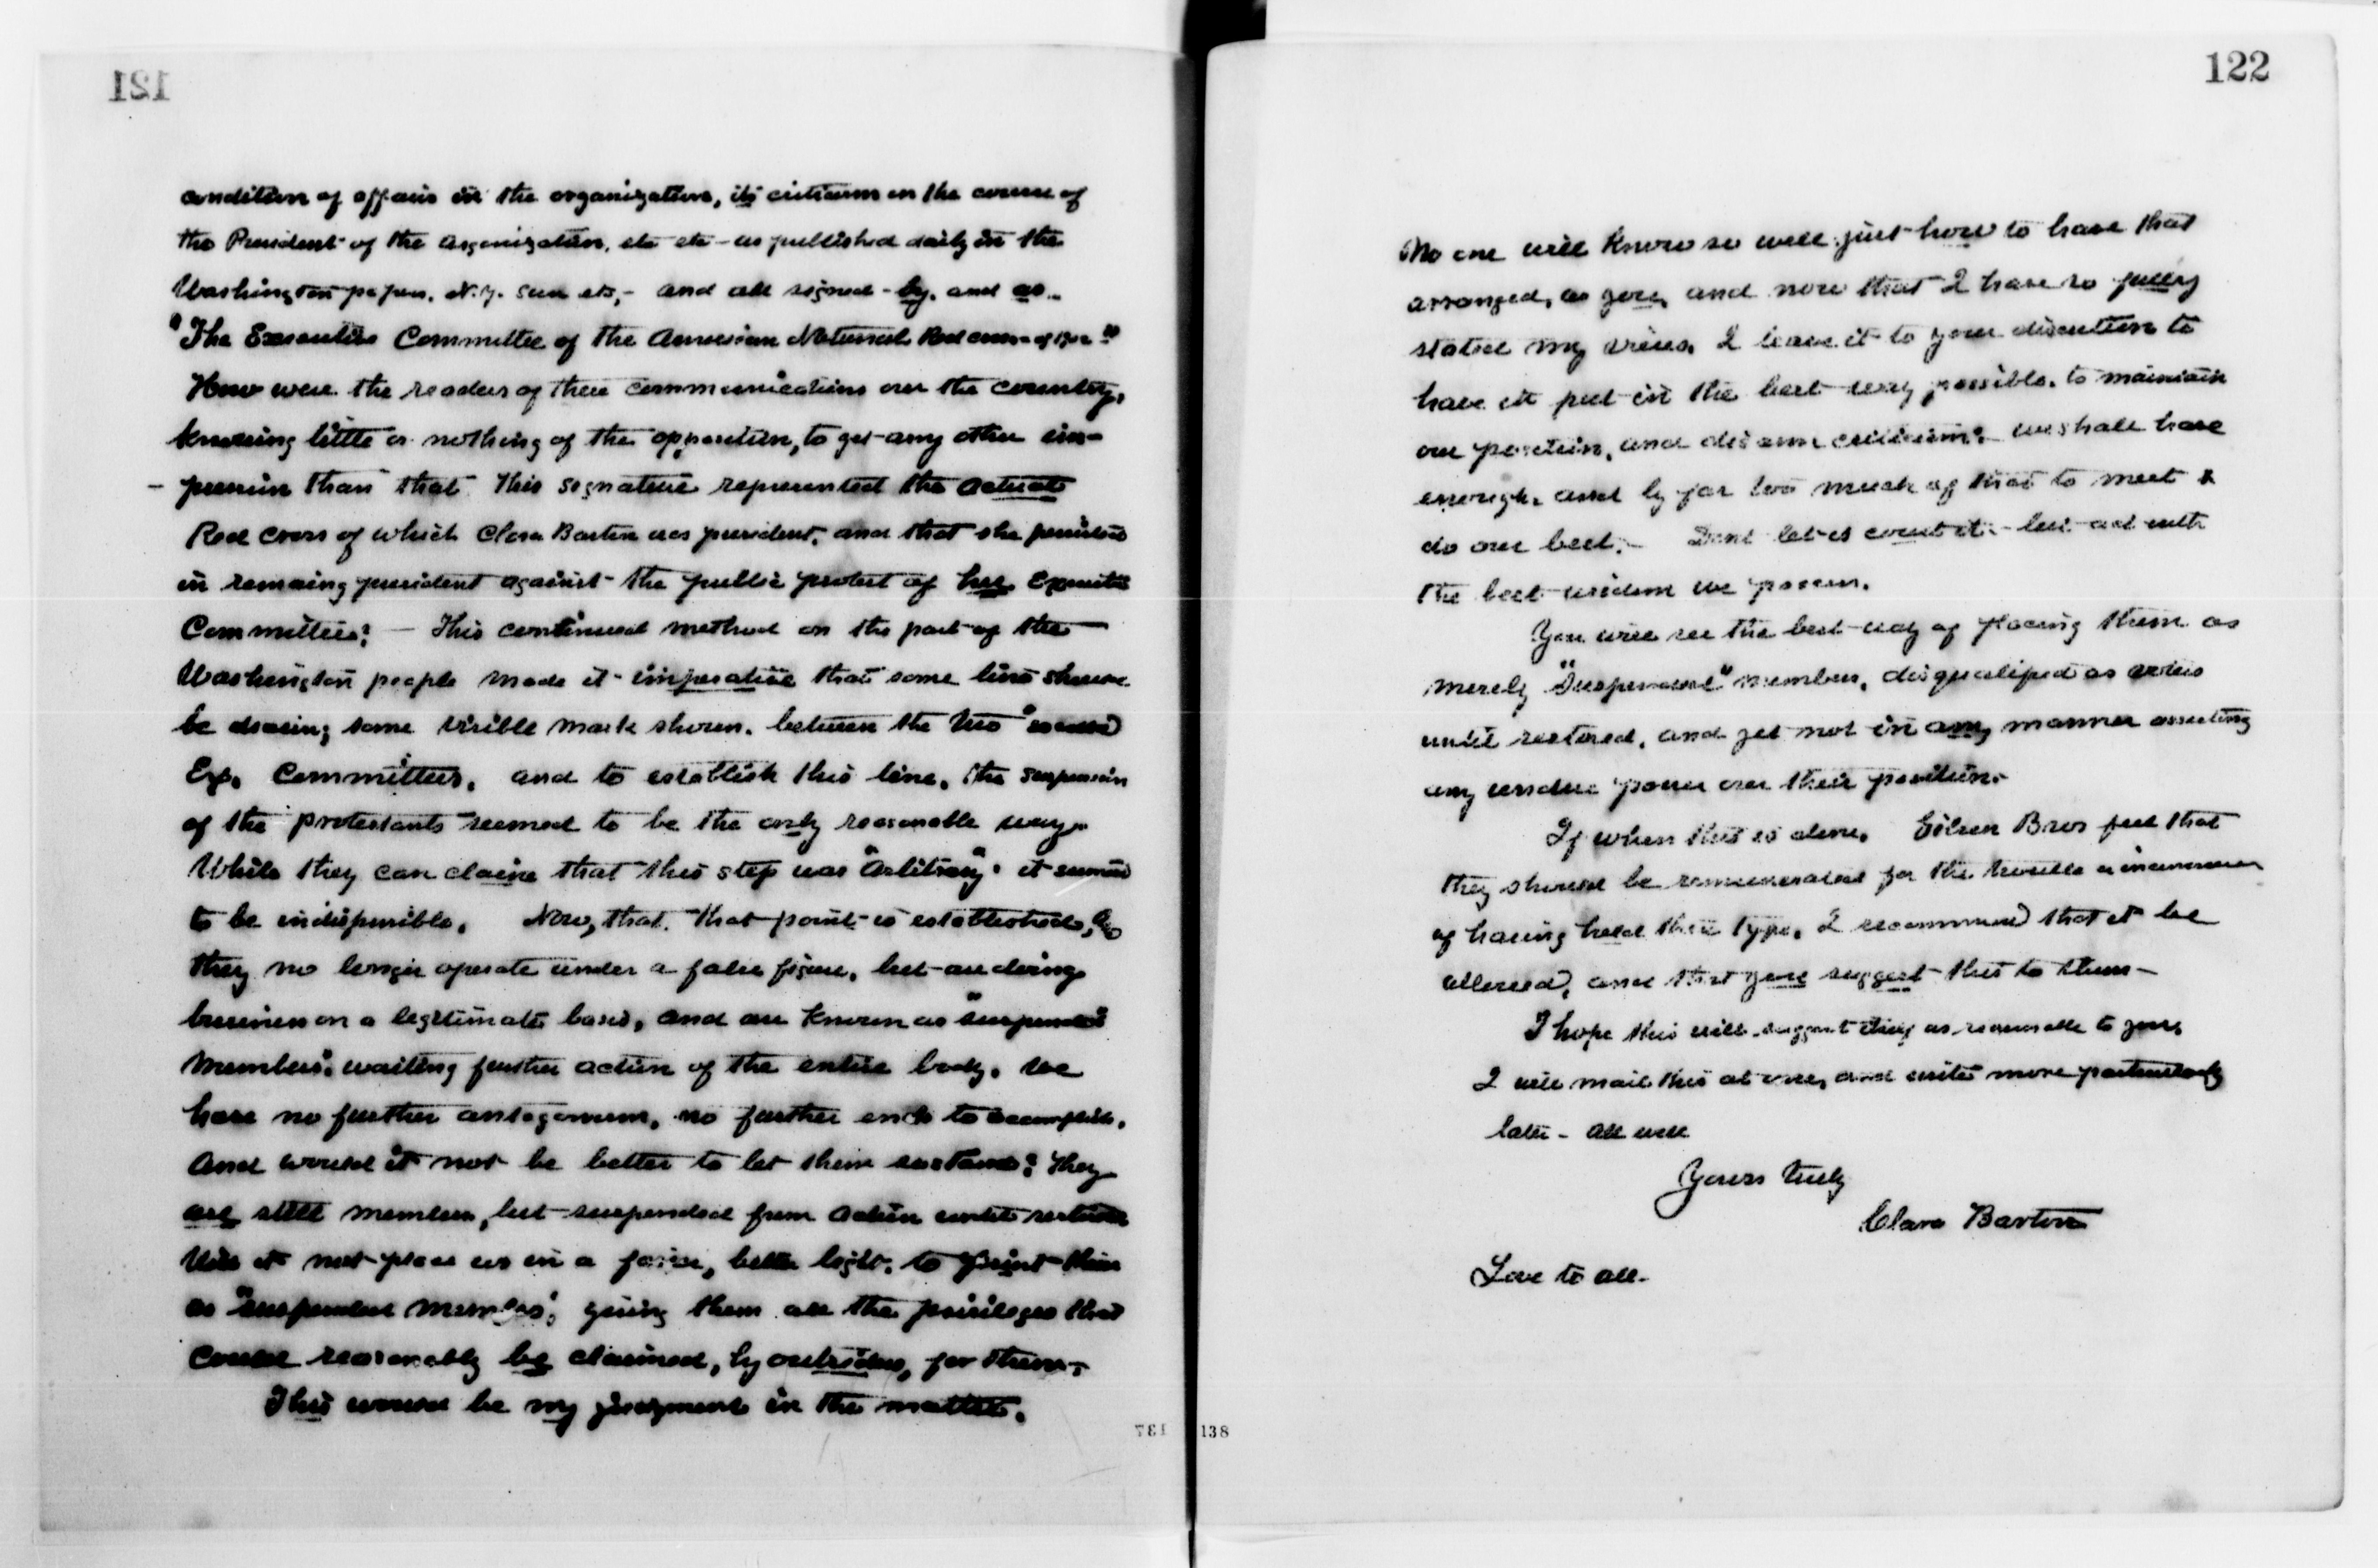 121
condition of affairs in the organization, its criticism on the course of
the President of the organization, etc etc - as published daily in the
Washington papers, N.Y. Sun etc, - and all signed - by, and as -
"The Executive Committee of the American National Red Cross - of 1902"
How were the readers of these communications over the country,
knowing little or nothing of the opposition, to get any other im-
- pression than that this signature represented the actual
Red Cross of which Clara Barton was president, and that she persisted
in remaing president against the public protest of her Executive
Committee? — This continued method on the part of the
Washington people made it imperative that some line should
be drawing some visible mark shown, between the two "so called"
Ex. Committees, and to establish this line, the suspension
of the protestants seemed to be the only reasonable way.
While they can claim that this step was "arbitrary" it seemed
to be indispensible. Now, that that point is established,
they no longer operate under a false figure, but are doing
business on a legitimate basis, and are known as "suspended
members" waiting further action of the entire body, we
have no further antagonism, no further ends to accomplish,
and would it not be better to let them so stand? They
are still members, but suspended from action until restored
Will it not place us in a fairer, better light, to print them
as "suspended members", giving them all the privileges that
could reasonably be claimed, by outsiders, for them -
This would be my judgment in the matter.
137
122
No one will know so well just how to have that
arranged, as you, and now that I have so fully
stated my views, I leave it to your discretion to
have it put in the best way possible, to maintain
our position, and disarm criticism - we shall have
enough, and by far too much of that to meet &
do our best. - Dont let us court it - but act with
the best wisdom we possess.
You will see the best way of placing them as
merely "Suspended" members, disqualified as voters
until restored, and yet not in any manner asserting
any undue power over their position.
If when this is done, Gibson Bros feel that
they should be remunerated for the trouble or inconvenience
of having held their type, I recommend that it be
allowed, and that you suggest this to them -
I hope this will suggest itself as reasonable to you,
I will mail this at once, and write more particularly
later - all well
Yours truly
Clara Barton
Love to all -
138